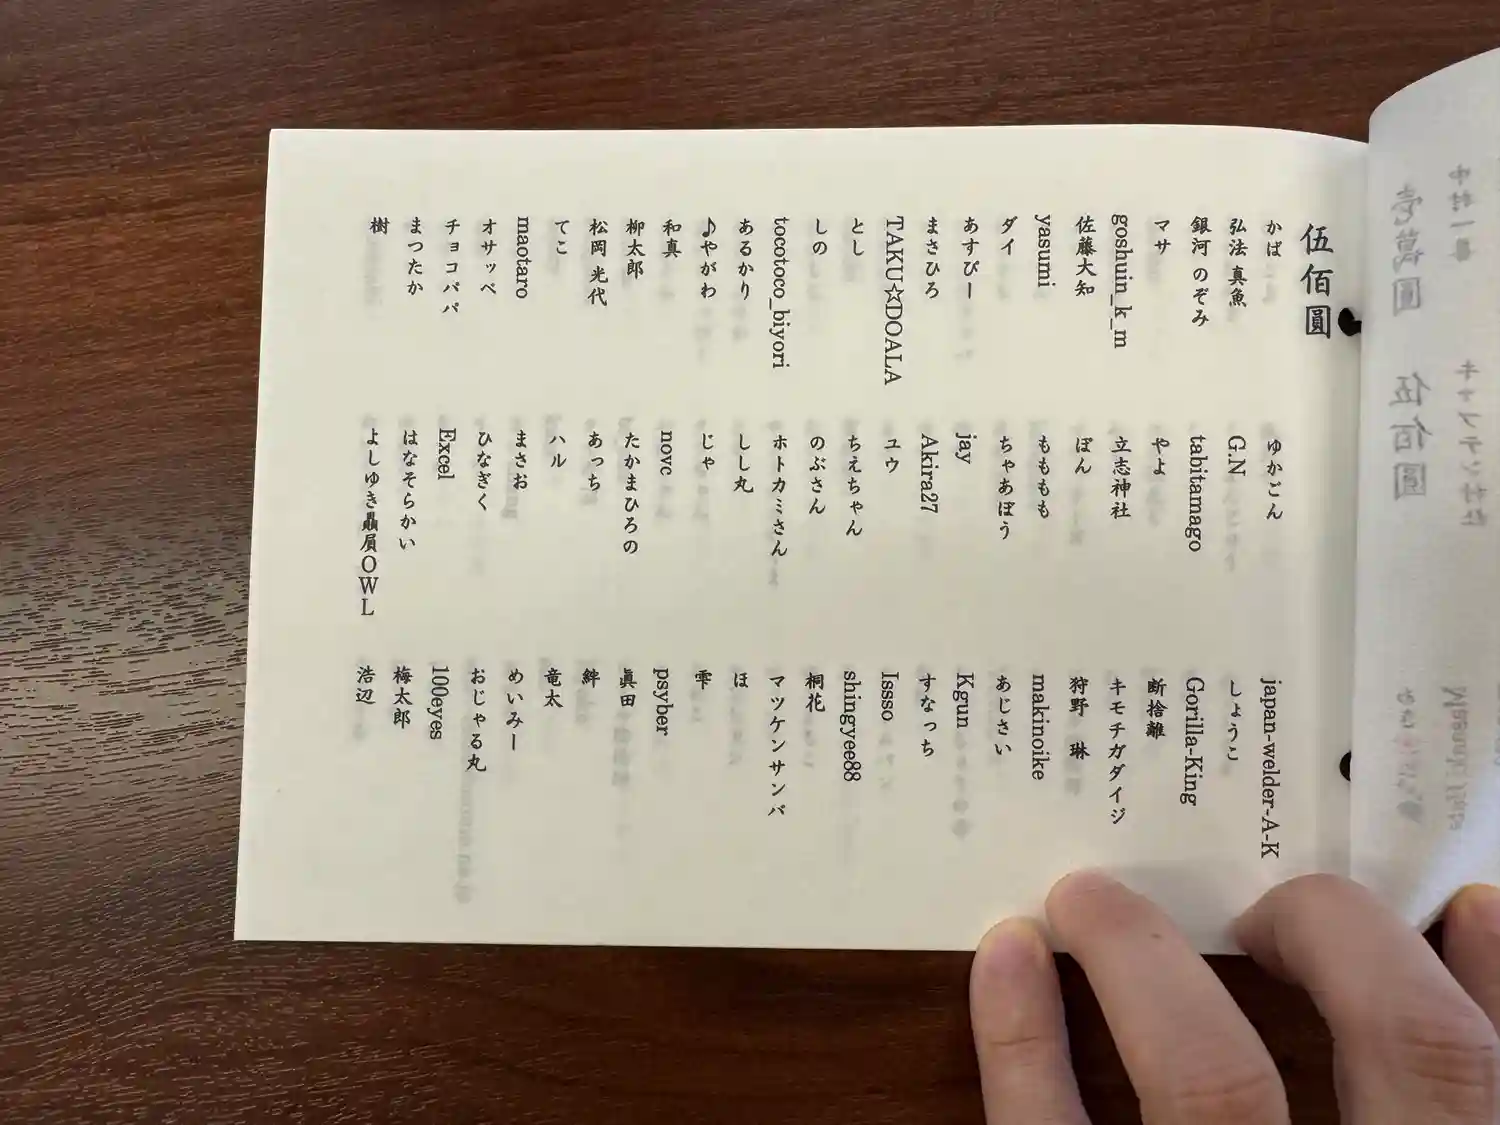 伍佰圓
かば ゆかごん japan-welder-A-K
弘法 真魚 G.N しょうこ
銀河 のぞみ tabitamago Gorilla-King
マサ やよ 断捨離
goshuin_k_m 立志神社 キモチガダイジ
佐藤大知 ぽん 狩野 琳
yasumi もももも makinoike
ダイ ちゃあぼう あじさい
あすぴー jay Kgun
まさひろ Akira27 すなっち
TAKU☆DOALA ユウ Issso
とし ちえちゃん shingyee88
しの のぶさん 桐花
tocotoco_biyori ホトカミさん マツケンサンバ
あるかり しし丸 ほ
♪やがわ じゃ 雫
和真 novc psyber
柳太郎 たかまひろの 眞田
松岡 光代 あっち 絆
てこ ハル 竜太
maotaro まさお めいみー
オサッペ ひなぎく おじゃる丸
チョコパパ Excel 100eyes
まつたか はなそらかい 梅太郎
樹 よしゆき贔屓OWL 浩辺